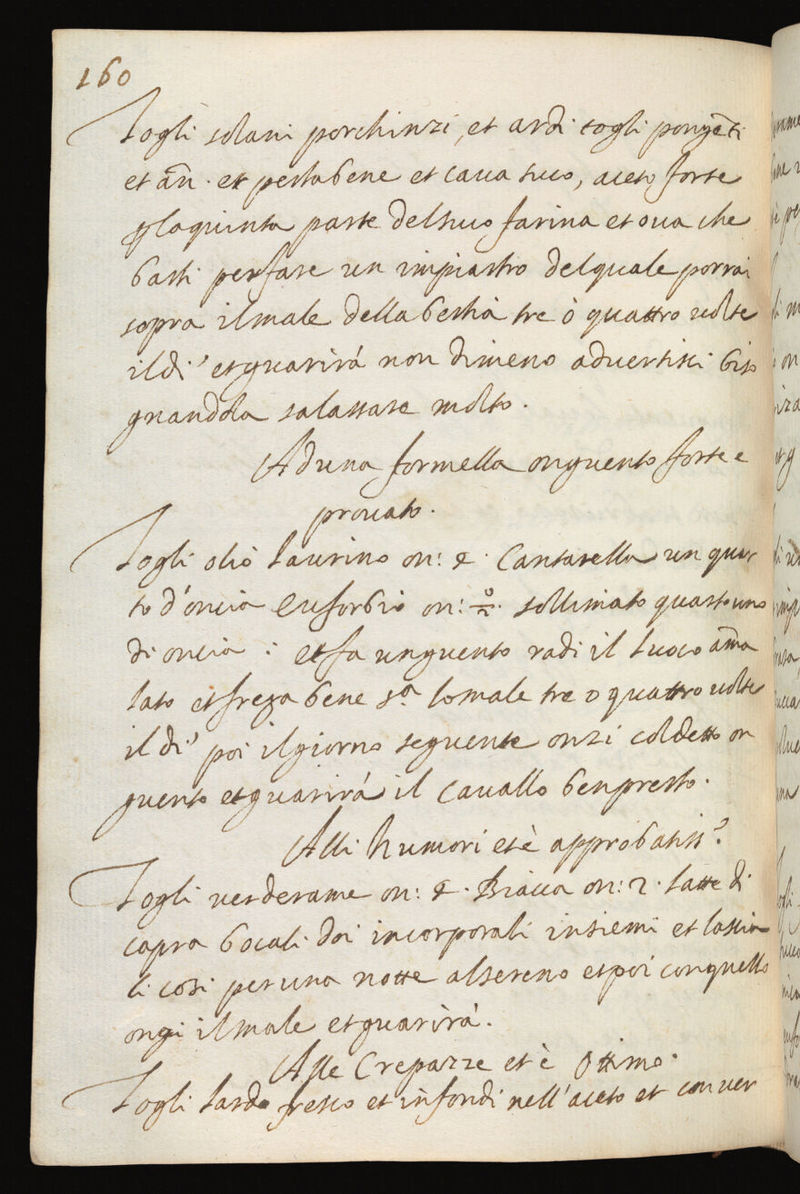 160
Togli solani porchinzi, et ardi togli pongēti
et añ. et pesta bene et caua suco, aceto forte
laquinta parte delsuco farina et oua che
basti perfare un impiastro delquale porrai
sopra ilmale della bestia tre ò quattro uolte
ildi' et guarirà non dimeno aduertisci biso
gnandola salassare molto.
Aduna formella onguento forte e
prouato.
Togli olio laurino on: Cantarella un quar
to d'oncia euforbio on: sollimato quarto uno
di oncia : et fa unguento radi il luoco ama
lato et frega bene s.a lomale tre o quattro uolte
il di' poi ilgiorno seguente onzi coldetto on
guento et guarirá il cauallo benpresto.
Alli humori et è approbatiss.o
Togli uerderame on: Biacca on: 2. latte di
capra bocali doi incorporali insiemi et lascia
li cosi peruna notte alsereno et poi conquello
ongi ilmale et guarirà.
Alle Crepazze et è ottimo.
Togli lardo fresco et infondi nell'aceto et conuer